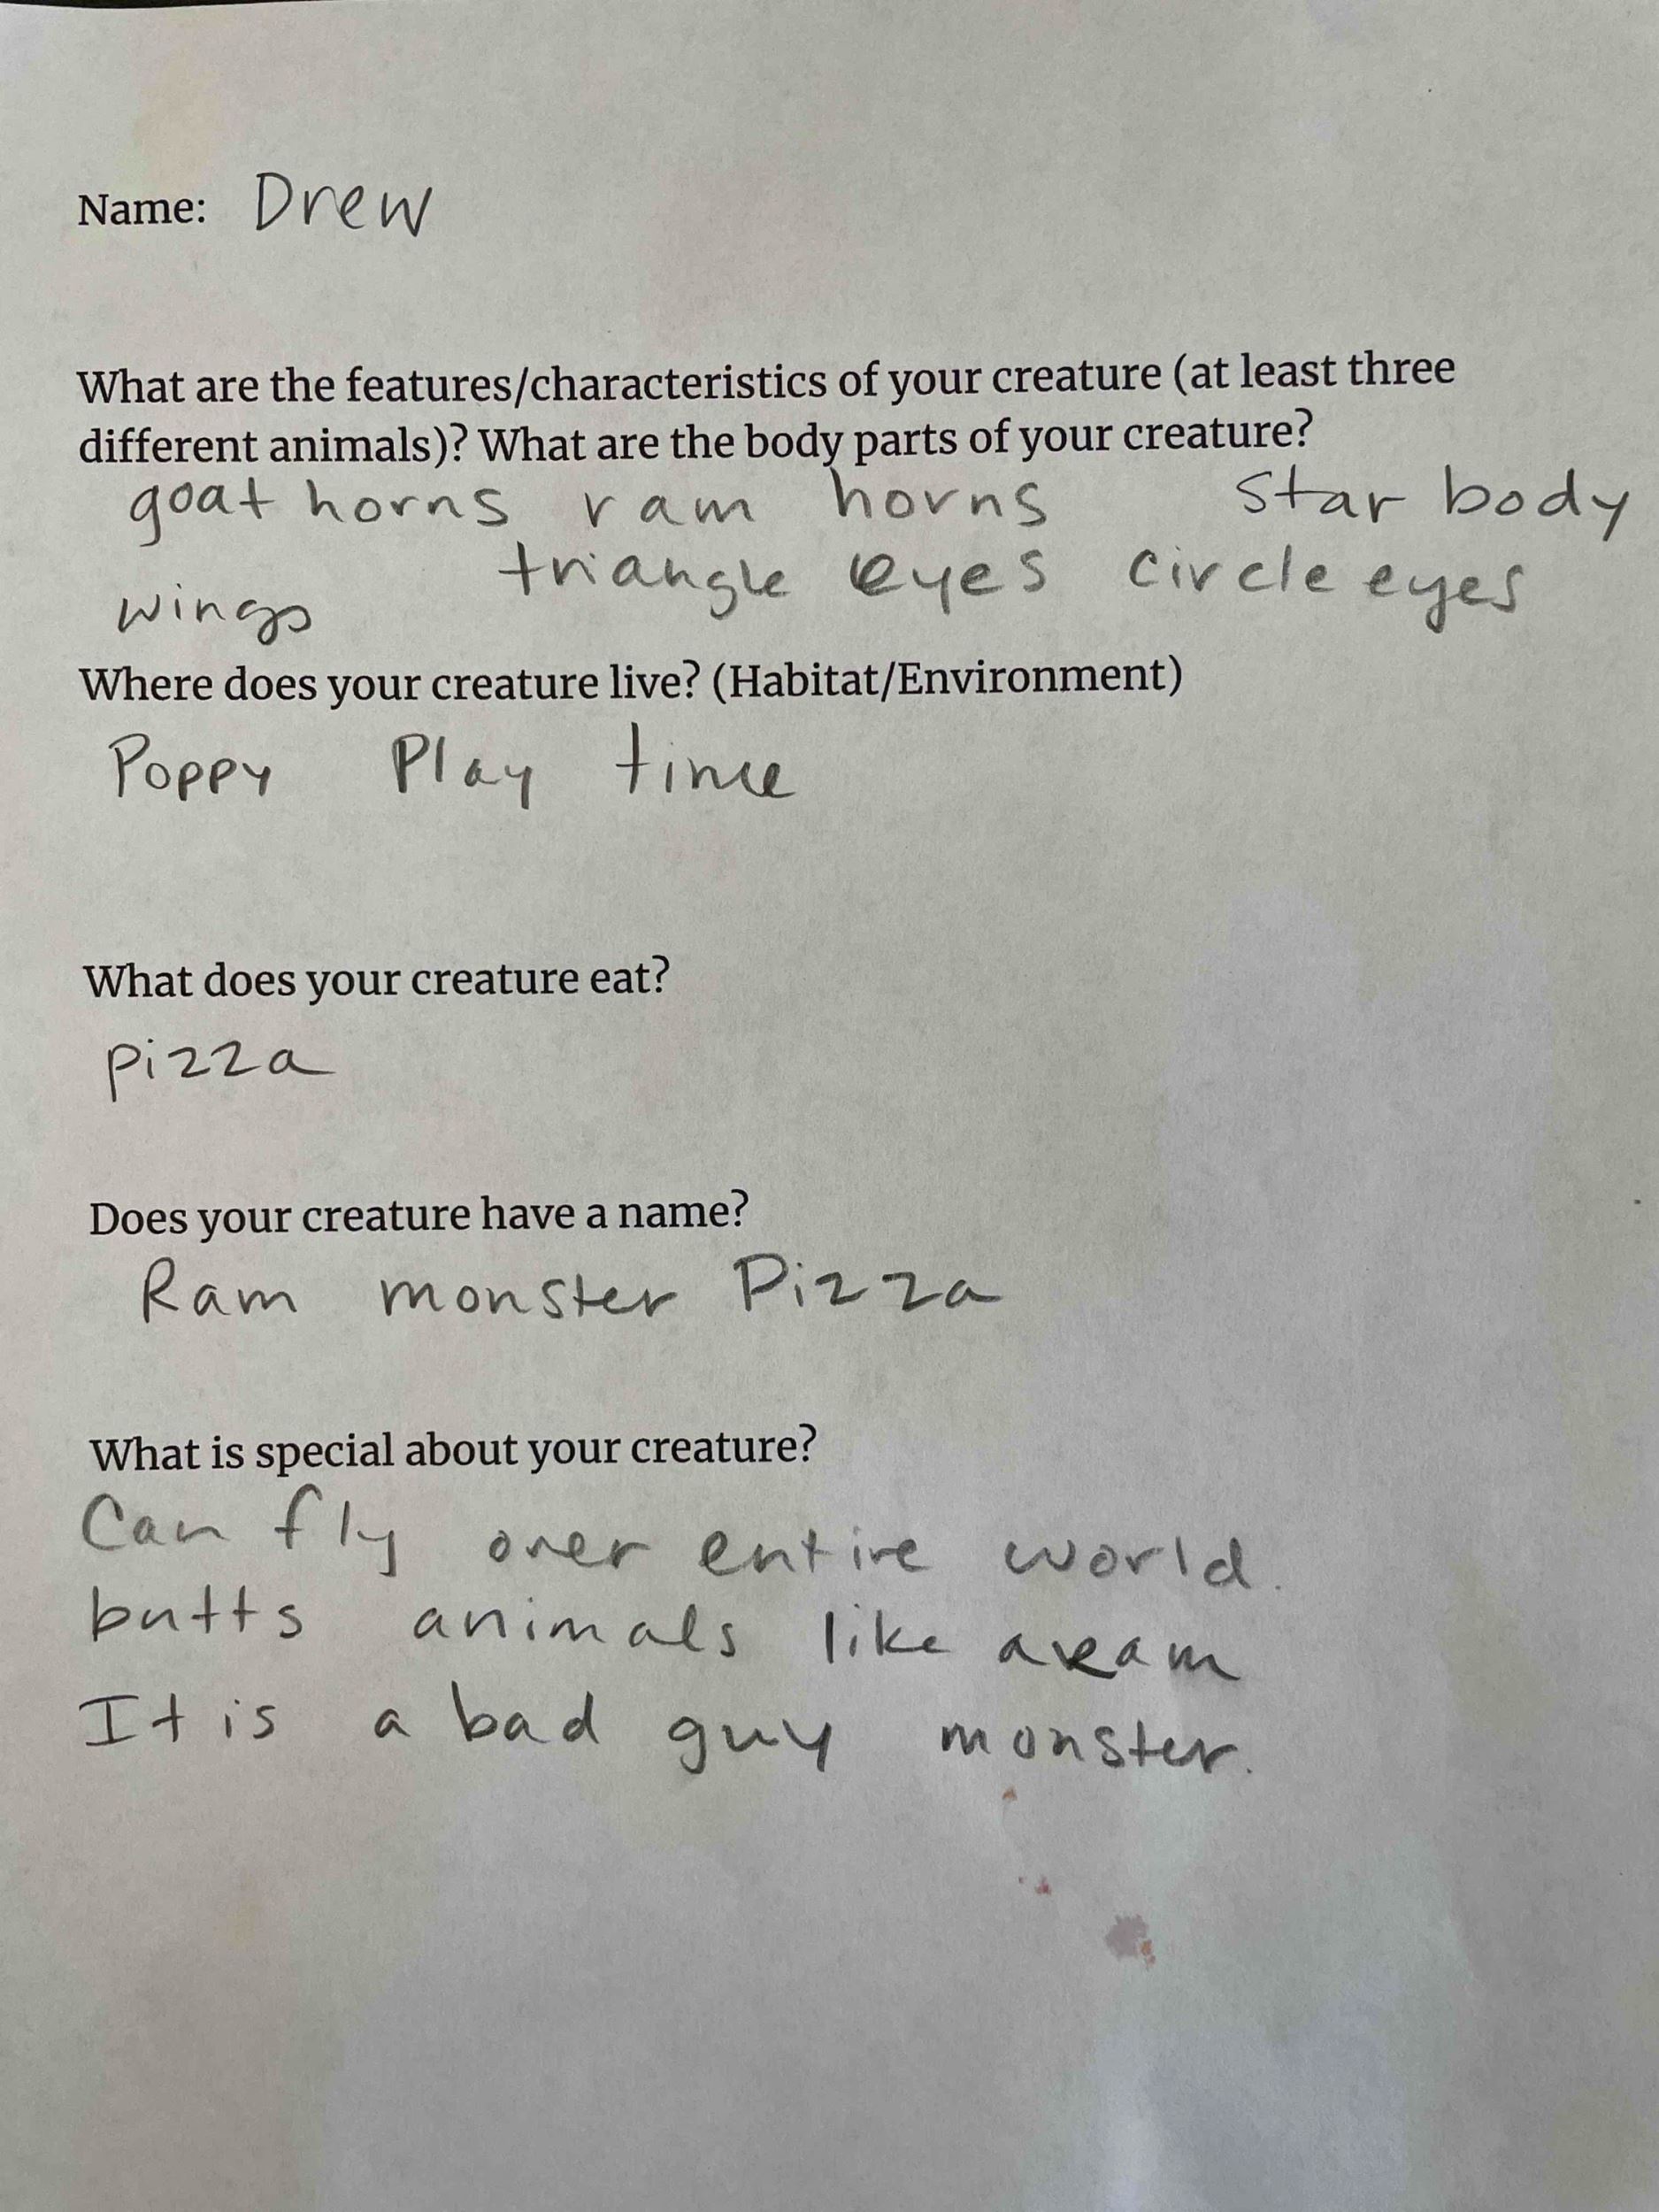 Name: Drew
What are the features/characteristics of your creature (at least three
different animals)? What are the body parts of your creature?
goat horns ram horns star body
wings triangle eyes circle eyes
Where does your creature live? (Habitat/Environment)
Poppy Play time
What does your creature eat?
pizza
Does your creature have a name?
Ram monster Pizza
What is special about your creature?
Can fly over entire world.
butts animals like a ram
It is a bad guy monster.